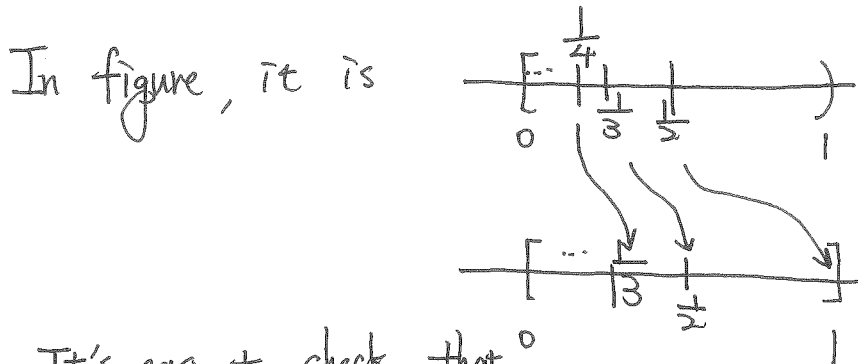 1/4
In figure, it is [ ... )
0 1/3 1/2 1
[ ... 1/3 ]
1/2
It's easy to check that 0 1